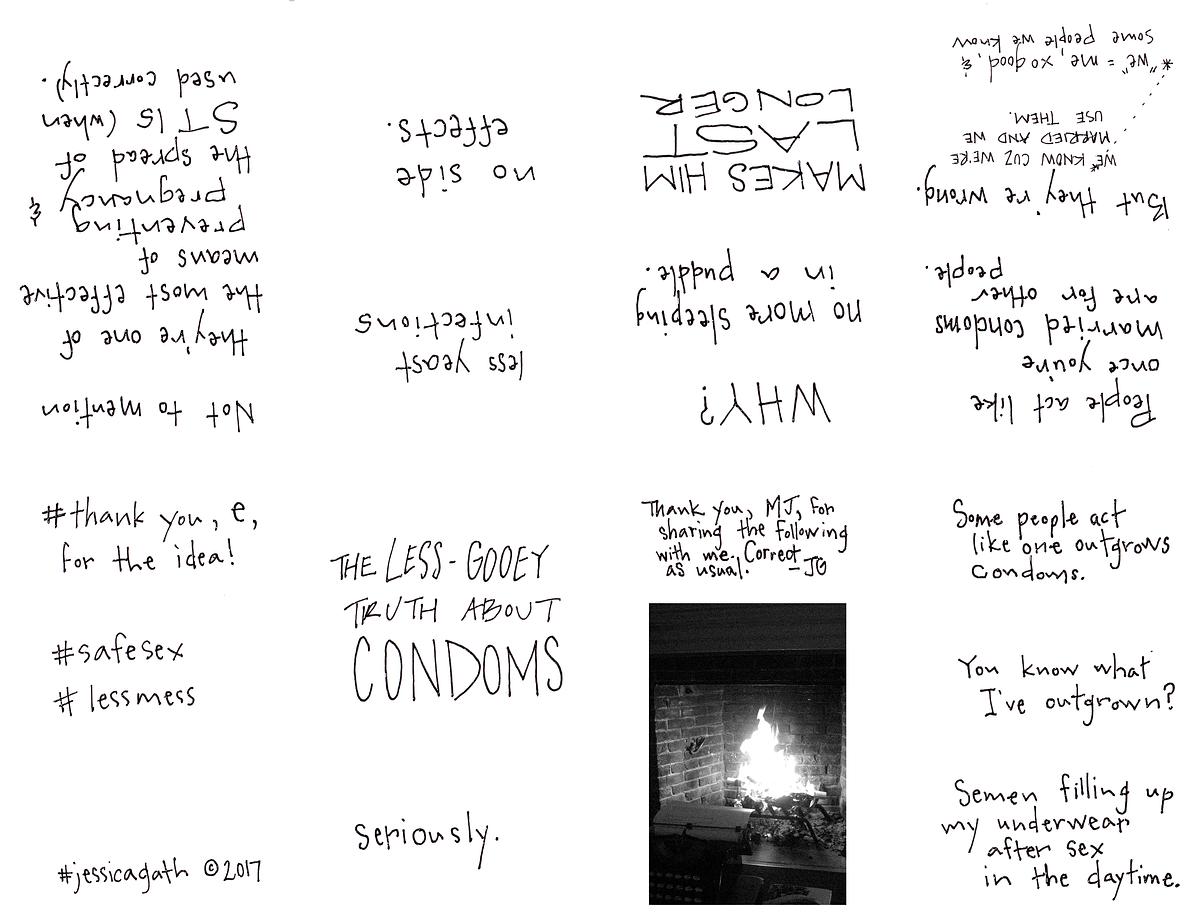 THE LESS-GOOEY
TRUTH ABOUT
CONDOMS
seriously.
Thank you, MJ, for
sharing the following
with me. Correct
as usual. –JG
Some people act
like one outgrows
condoms.
You know what
I've outgrown?
Semen filling up
my underwear
after sex
in the daytime.
People act like
once you're
married condoms
are for other
people.
But they're wrong.
WE* KNOW CUZ WE'RE
MARRIED AND WE
USE THEM.
*"we" = me, xo good, &
some people we know
WHY?
no more sleeping
in a puddle.
MAKES HIM
LAST
LONGER
less yeast
infections
no side
effects.
Not to mention
they're one of
the most effective
means of
preventing
pregnancy &
the spread of
STIS (when
used correctly).
#thank you, e,
for the idea!
#safesex
#lessmess
#jessicagath ©2017